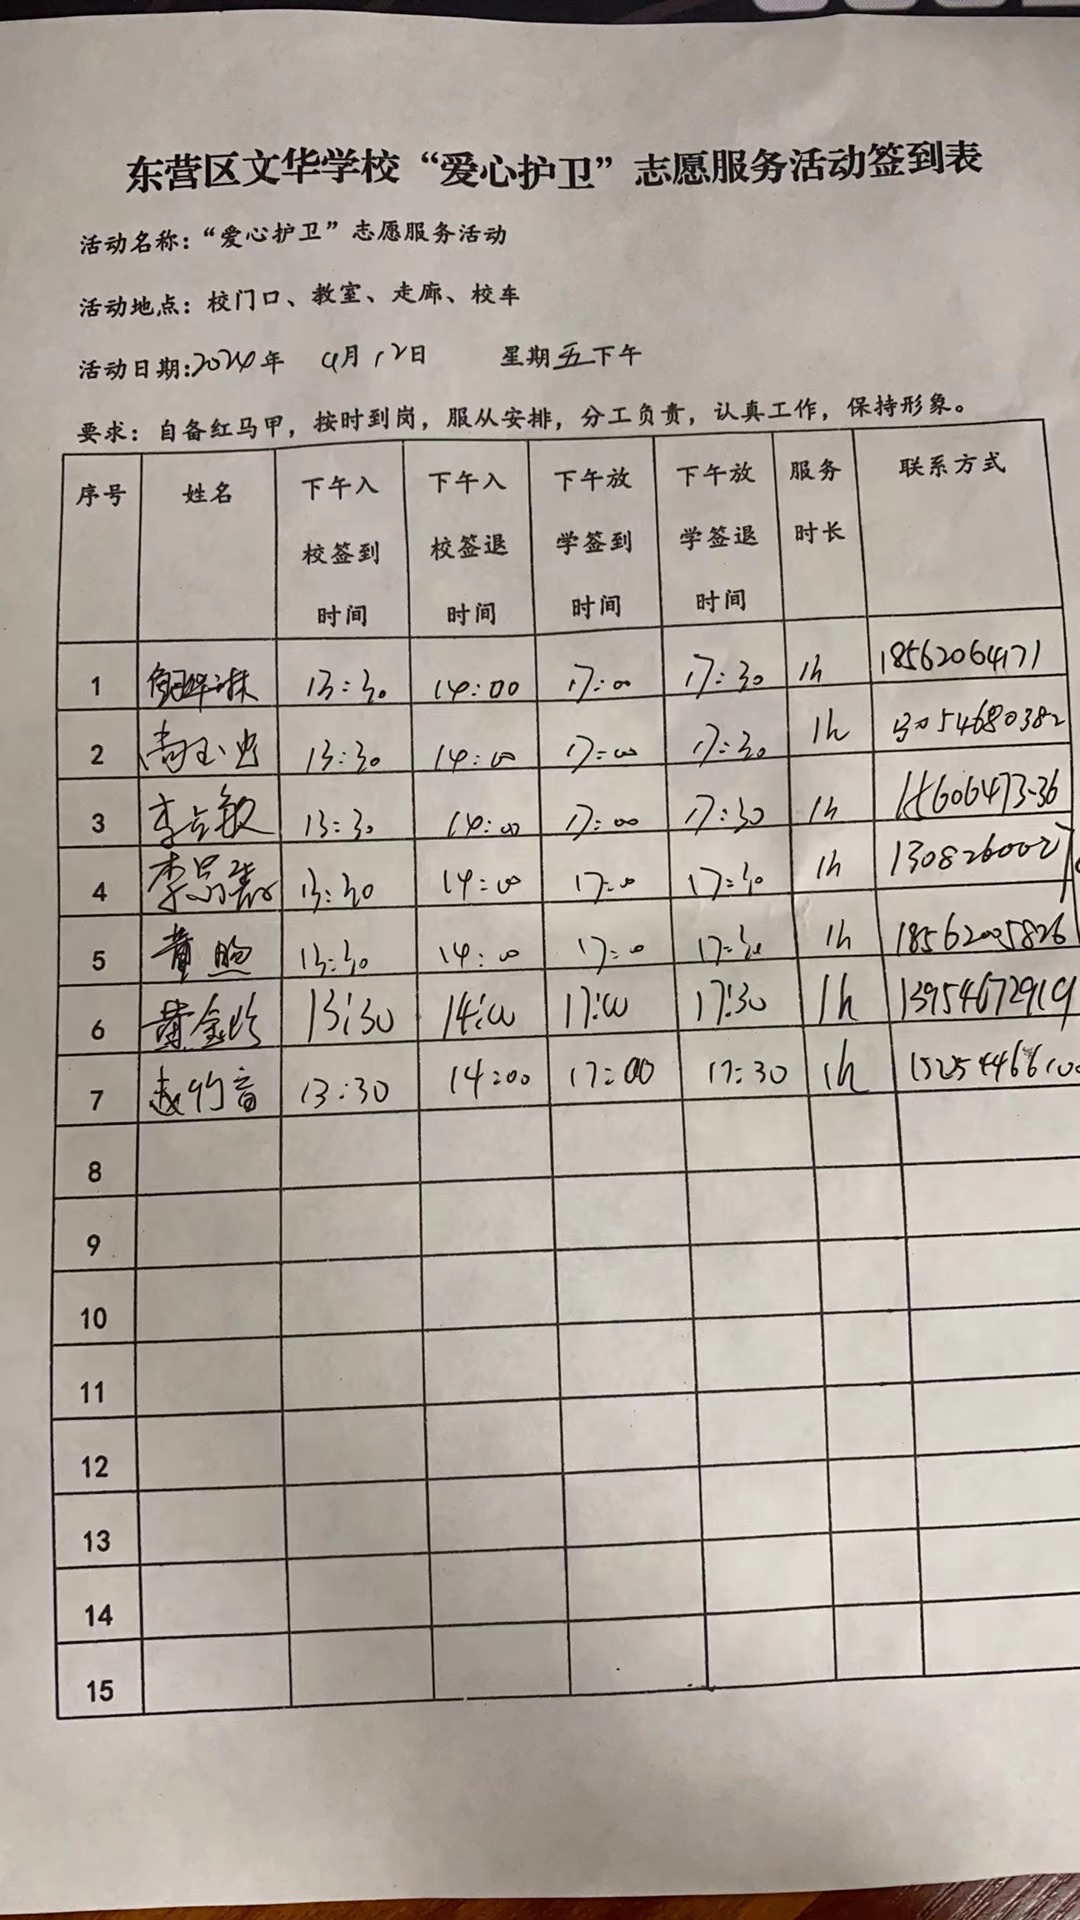 东营区文华学校“爱心护卫”志愿服务活动签到表
活动名称：“爱心护卫”志愿服务活动
活动地点：校门口、教室、走廊、校车
活动日期:2024年 4月12日 星期五下午
要求：自备红马甲，按时到岗，服从安排，分工负责，认真工作，保持形象。
序号 姓名 下午入校签到时间 下午入校签退时间 下午放学签到时间 下午放学签退时间 服务时长 联系方式
1 13:30 14:00 17:00 17:30 1h 18562064171
2 13:30 14:00 17:00 17:30 1h 13054680382
3 李立敏 13:30 14:00 17:00 17:30 1h
4 13:30 14:00 17:00 17:30 1h
5 黄 13:30 14:00 17:00 17:30 1h 18562005826
6 黄金玲 13:30 14:00 17:00 17:30 1h 13954672919
7 赵竹音 13:30 14:00 17:00 17:30 1h
8
9
10
11
12
13
14
15